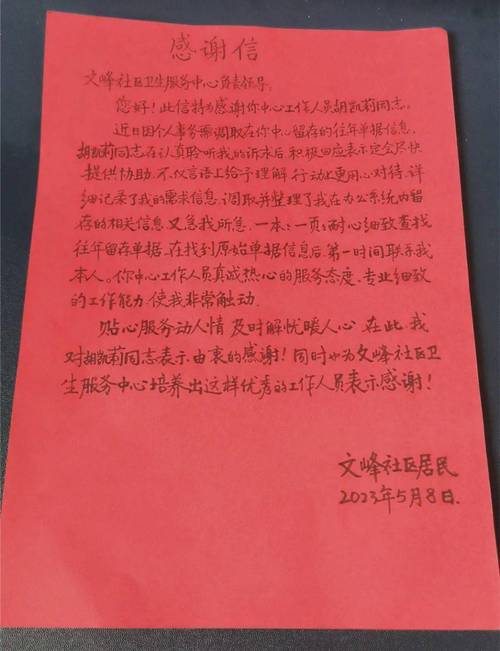 感谢信
文峰社区卫生服务中心负责领导:
您好!此信特为感谢你中心工作人员胡凯莉同志。
近日因个人事务需调取在你中心留存的往年单据信息,
胡凯莉同志在认真聆听我的诉求后积极回应表示定会尽快
提供协助。不仅言语上给予理解行动上更用心对待,详
细记录了我的需求信息,调取并整理了我在办公系统内留
存的相关信息,又急我所急,一本:一页:耐心细致查找
往年留存单据,在找到原始单据信息后,第一时间联系我
本人。你中心工作人员真诚热心的服务态度,专业细致
的工作能力,使我非常触动。
贴心服务动人情 及时解忧暖人心 在此,我
对胡凯莉同志表示由衷的感谢!同时也为文峰社区卫
生服务中心培养出这样优秀的工作人员表示感谢!
文峰社区居民
2023年5月8日.